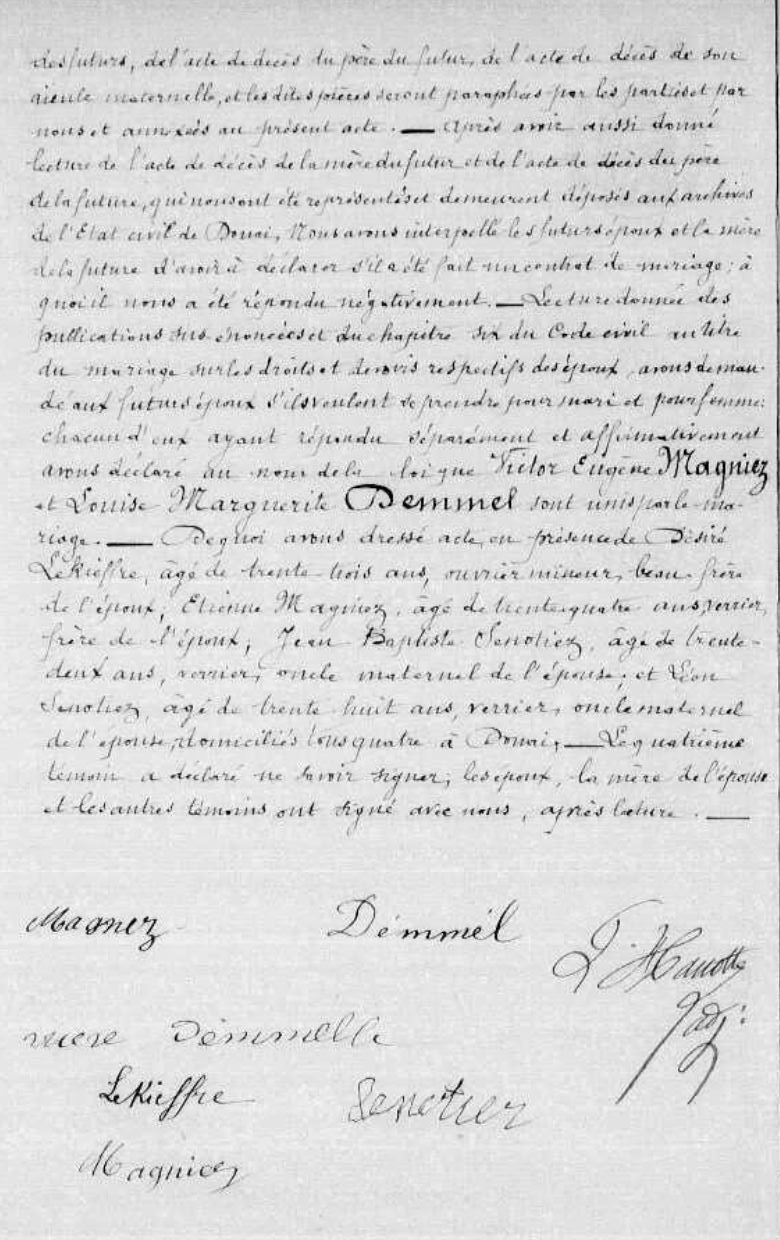 des futurs, de l'acte de décès du père du futur, de l'acte de décès de son
aïeule maternelle, et les dites pièces seront paraphées par les parties et par
nous et annexées au présent acte. — Après avoir aussi donné
lecture de l'acte de décès de la mère du futur et de l'acte de décès du père
de la future, qui nous ont été représentés et demeurent déposés aux archives
de l'Etat civil de Douai, Nous avons interpellé les futurs époux et la mère
de la future d'avoir à déclarer s'il a été fait un contrat de mariage; à
quoi il nous a été répondu négativement. — Lecture donnée des
publications sus énoncées et du chapitre six du Code civil au titre
du mariage sur les droits et devoirs respectifs des époux, avons deman-
dé aux futurs époux s'ils veulent se prendre pour mari et pour femme:
chacun d'eux ayant répondu séparément et affirmativement
avons déclaré au nom de la loi que Victor Eugène Magniez
et Louise Marguerite Demmel sont unis par le ma-
riage. — De quoi avons dressé acte, en présence de Désiré
Lekieffre, âgé de trente-trois ans, ouvrier mineur, beau-frère
de l'époux; Etienne Magniez, âgé de trente-quatre ans, verrier,
frère de l'époux; Jean Baptiste Senotiez, âgé de trente-
deux ans, verrier, oncle maternel de l'épouse; et Léon
Senotiez, âgé de trente huit ans, verrier, oncle maternel
de l'épouse, domiciliés tous quatre à Douai; — Le quatrième
témoin a déclaré ne savoir signer; les époux, la mère de l'épouse
et les autres témoins ont signé avec nous, après lecture. —
Magnez Démmél
Hanotte
adj:
mere Demmelle
Lekieffre Senotiez
Magniez